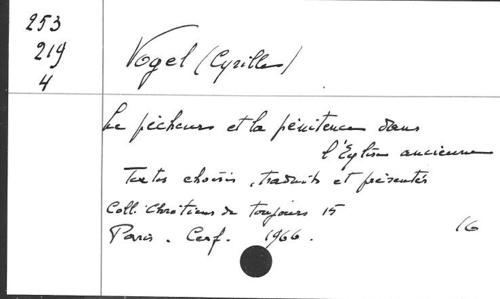 253
219
4
Vogel (Cyrille)
Le pécheur et la pénitence dans
l'Eglise ancienne
Textes choisis, traduits et présentés
Coll. Chrétiens de toujours 15
Paris. Cerf. 1966.
16